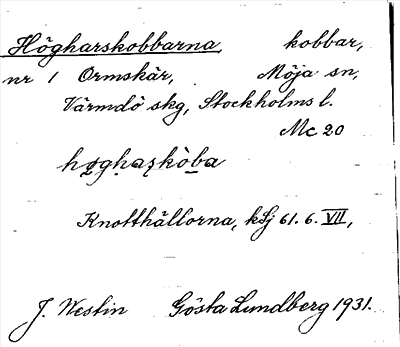 Högharskobbarna, kobbar,
nr 1 Ormskär, Möja sn,
Värmdö skg, Stockholms l.
Mc 20
Knotthällorna, 61. 6. VII,
J. Westin Gösta Lundberg 1931.